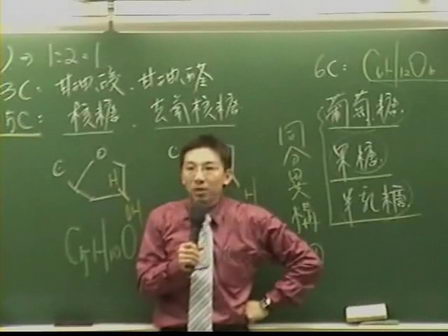 ) → 1:2:1
3C: 甘油酸、甘油醛
5C: 核糖、去氧核糖
C O H OH
C H
C5H10O
同分異構
6C: C6H12O6
葡萄糖
果糖
半乳糖